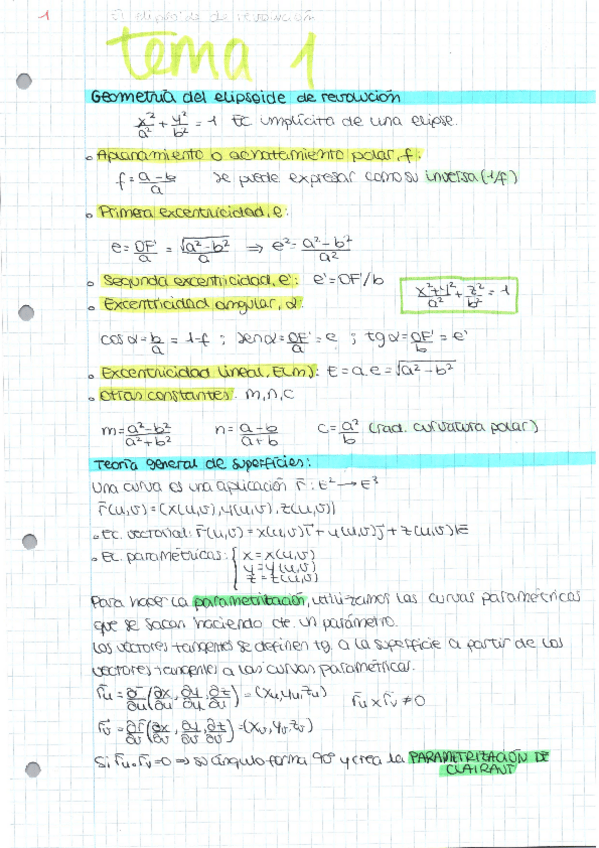 1
El elipsoide de revolución
tema 1
Geometría del elipsoide de revolución
x²/a² + y²/b² = 1 Ec implícita de una elipse.
• Aplanamiento o achatamiento polar, f:
f = a-b/a se puede expresar como su inversa (1/f)
• Primera excentricidad, e:
e = OF'/a = √a²-b²/a ⇒ e² = a²-b²/a²
• Segunda excentricidad, e': e' = OF'/b
x²+y²/a² + z²/b² = 1
• Excentricidad angular, α:
cos α = b/a = 1-f ; sen α = OF'/a = e ; tg α = OF'/b = e'
• Excentricidad lineal, E(m): E = a.e = √a²-b²
• Otras constantes: m, n, c
m = a²-b²/a²+b² n = a-b/a+b c = a²/b (rad. curvatura polar)
Teoría general de superficies:
Una curva es una aplicación r̄: E² → E³
r̄(u,v) = (x(u,v), y(u,v), z(u,v))
• Ec. vectorial: r̄(u,v) = x(u,v)ī + y(u,v)j̄ + z(u,v)k̄
• Ec. paramétricas: { x = x(u,v)
y = y(u,v)
z = z(u,v)
Para hacer la parametrización, utilizamos las curvas paramétricas
que se sacan haciendo cte. un parámetro.
Los vectores tangentes se definen tg. a la superficie a partir de los
vectores tangentes a las curvas paramétricas.
r̄u = ∂r̄/∂u (∂x/∂u, ∂y/∂u, ∂z/∂u) = (xu, yu, zu) r̄u x r̄v ≠ 0
r̄v = ∂r̄/∂v (∂x/∂v, ∂y/∂v, ∂z/∂v) = (xv, yv, zv)
Si r̄u · r̄v = 0 ⇒ su ángulo forma 90º y crea la PARAMETRIZACIÓN DE
CLAIRAUT